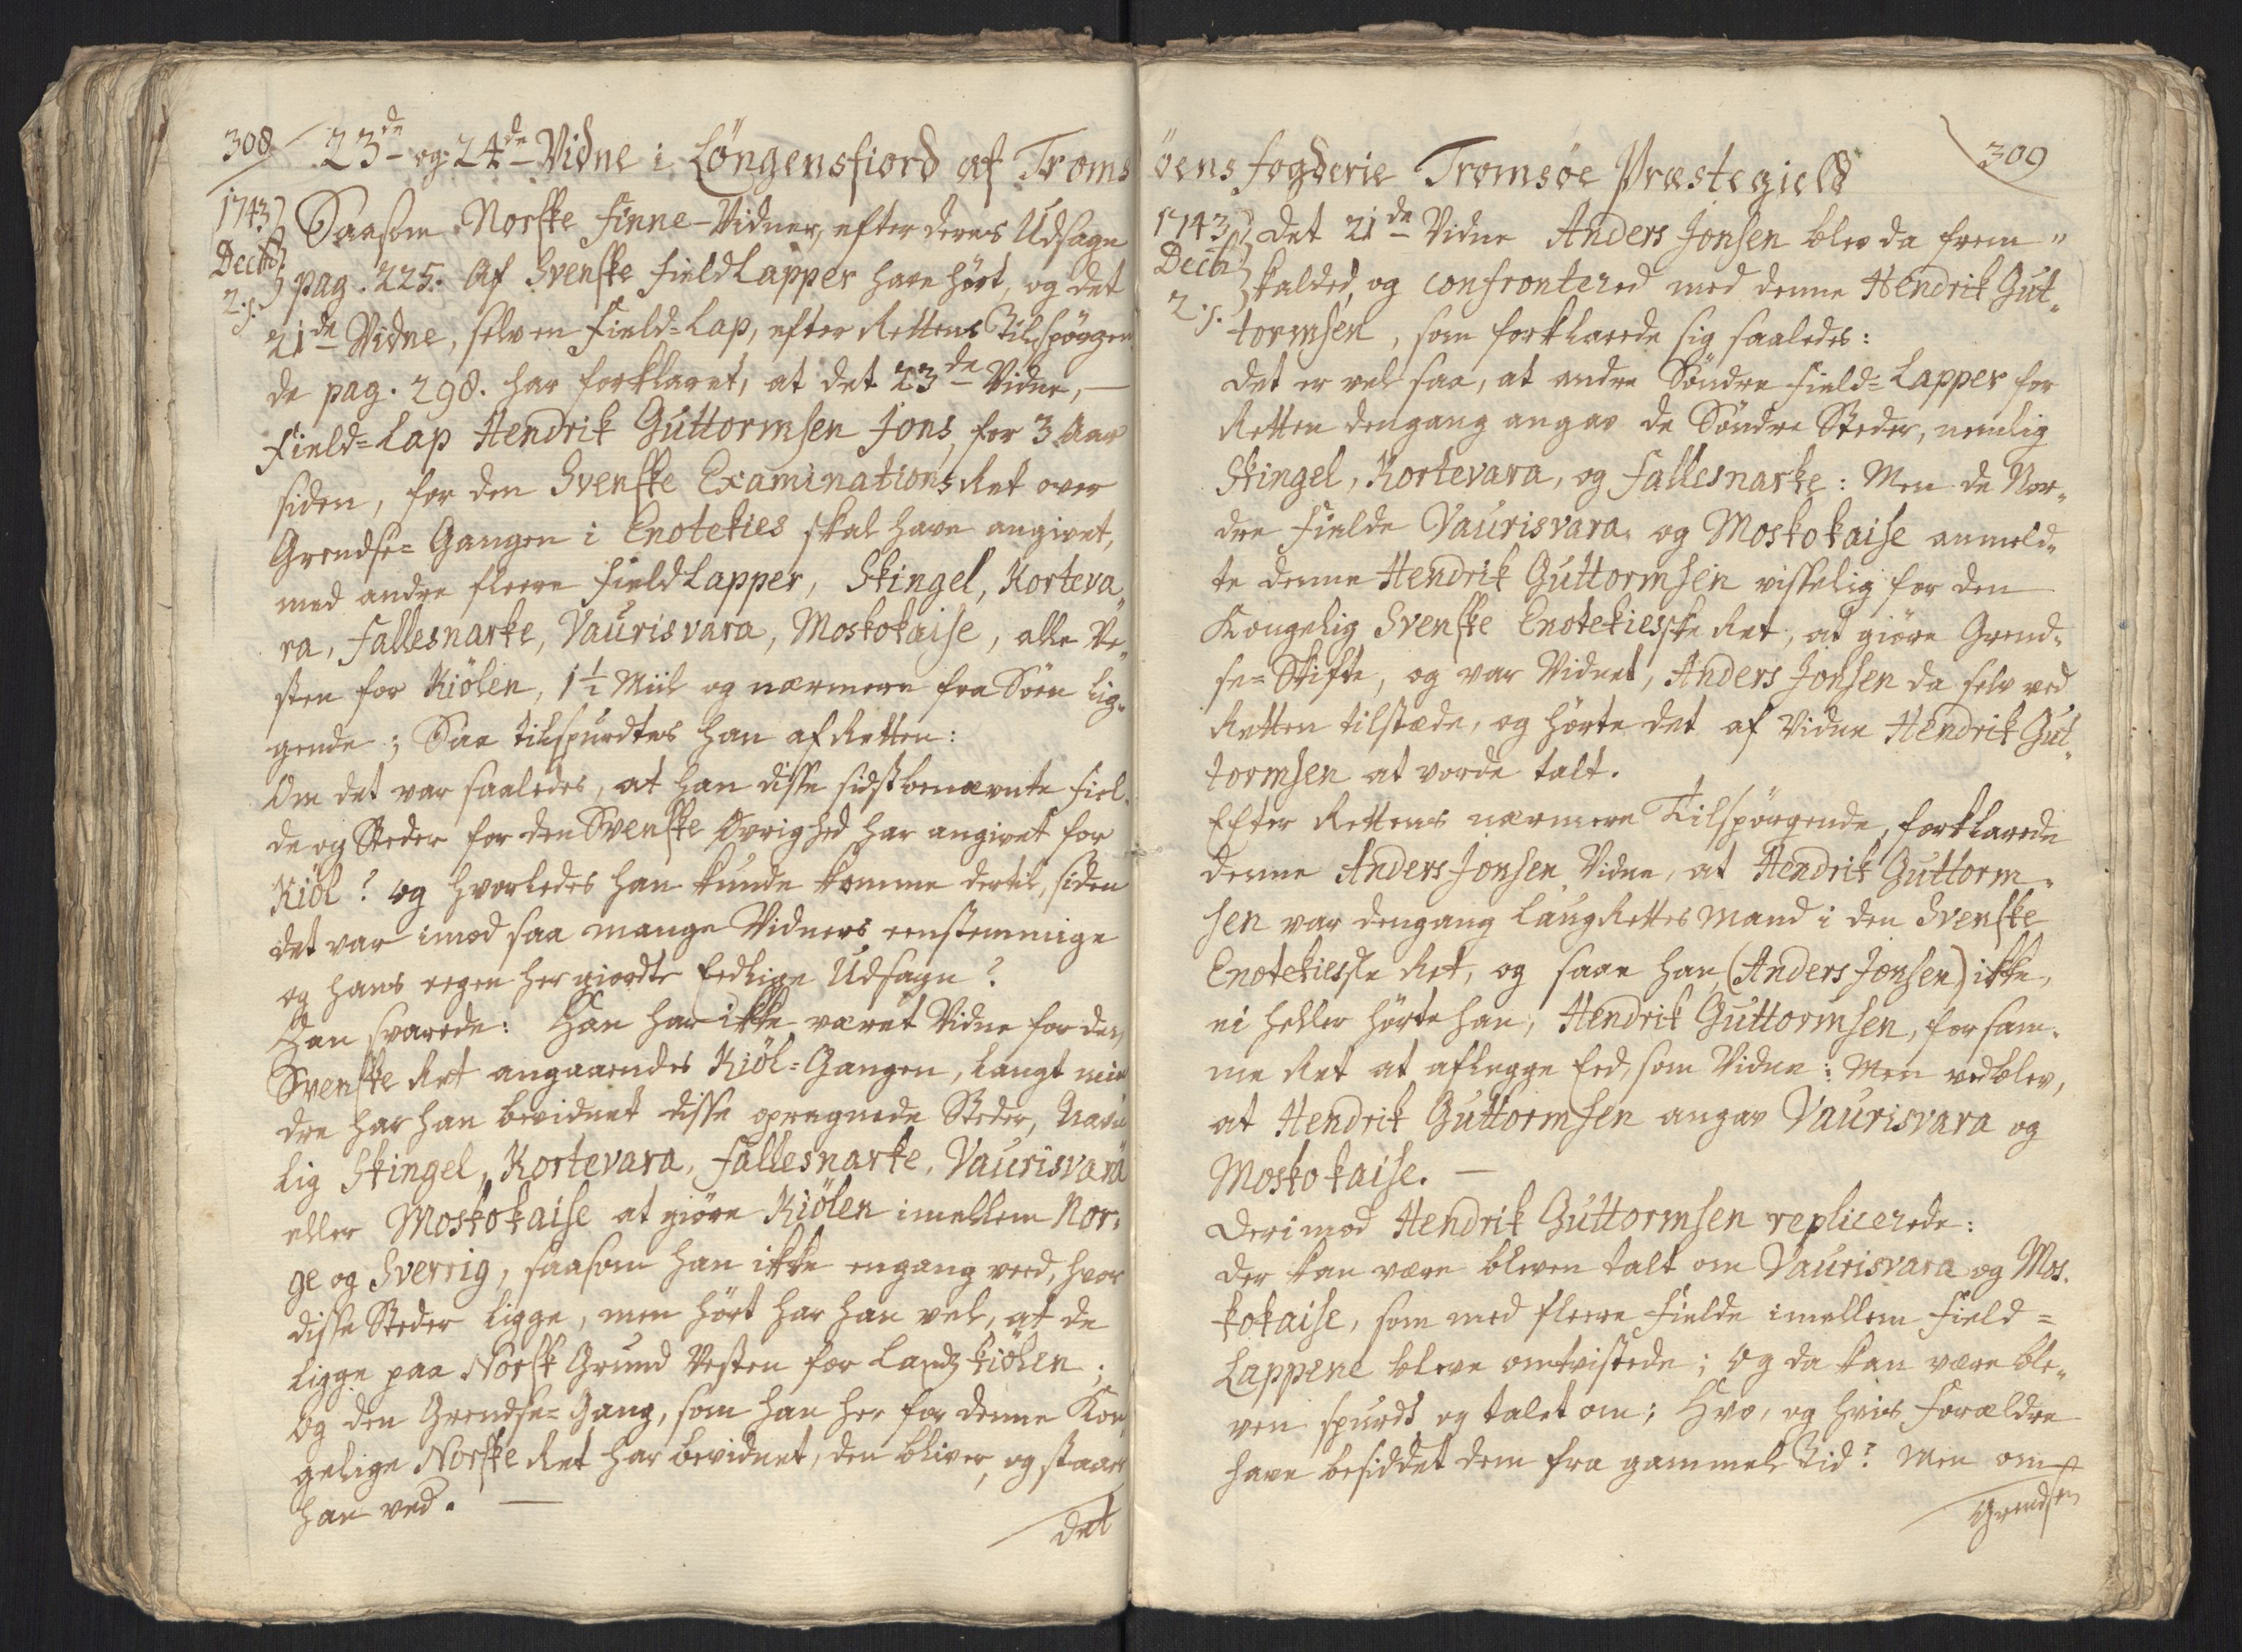 308
23de og 24de Vidne i Löngensfiord af Troms
1743
Decbr
2. s.
Saasom Norske Finne-Vidner, efter deres Udsagn
pag. 225. Af Svenske Field Lapper have hört, og det
21de Vidne, selv en Field-Lap, efter Rettens Tilspörgen
de pag. 298. har forklaret, at det 23de Vidne, —
Field-Lap Hendrik Guttormsen Jons, for 3 Aar
siden, for den Svenske Examinations Ret over
Grendse-Gangen i Enotekies skal have angivet,
med andre fleere Field Lapper, Skingel, Korteva„
ra, Fallesnarke, Vaurisvara, Moskokaise, alle Ve„
sten for Kiölen, 1½ Miil og nærmere fra Söen lig„
gende; Saa tilspurdtes han af Retten:
Om det var saaledes, at han disse sidstbenævnte Fiel„
de og Steder for den Svenske Øvrighed har angivet for
Kiöl? og hvorledes han kunde komme dertil, siden
det var imod saa mange Vidners eenstemmige
og hans egen her giordte Eedlige Udsagn?
Han svarede: Han har ikke været Vidne for den
Svenske Ret angaaendes Kiöl-Gangen, langt min
dre har han bevidnet disse opregnede Steder, Navn
lig Skingel, Kortevara, Fallesnarke, Vaurisvara
eller Moskokaise at giöre Kiölen imellem Nor„
ge og Sverrig, saasom han ikke engang veed, hvor
disse Steder ligge, men hört har han vel, at de
ligge paa Norsk Grund Vesten for Landz Kiölen;
Og den Grendse-Gang, som han her for denne Kon
gelige Norske Ret har bevidnet, den bliver, og staaer
han ved. —
det
309
öens Fogderie Tromsöe Præstegield
1743
Decbr
2. s.
det 21de Vidne Anders Jonsen blev da frem„
kalded, og confrontered med denne Hendrik Gut„
tormsen, som forklarede sig saaledes:
det er vel saa, at andre Söndre Field-Lapper for
Retten dengang angav de Söndre Steder, nemlig
Skingel, Kortevara, og Fallesnarke: Men de Nor„
dre Fielde Vaurisvara og Moskokaise anmeld„
te denne Hendrik Guttormsen visselig for den
Kongelig Svenske Enotekiesske Ret, at giöre Grend„
se-Skifte, og var Vidnet, Anders Jonsen da selv ved
Retten tilstæde, og hörte det af Vidne Hendrik Gut„
tormsen at vorde talt.
Efter Rettens nærmere Tilspörgende, forklarede
denne Anders Jonsen Vidne, at Hendrik Guttorm„
sen var dengang Laug Rettes Mand i den Svenske
Enotekiesse Ret, og saae han (Anders Jonsen) ikke,
ei heller hörte han, Hendrik Guttormsen, for sam„
me Ret at aflegge Eed, som Vidne: Men vedblev,
at Hendrik Guttormsen angav Vaurisvara og
Moskokaise. —
Derimod Hendrik Guttormsen replicerede:
der kan være bleven talt om Vaurisvara og Mos„
kokaise, som med fleere Fielde imellem Field=
Lappene bleve omtvistede; Og da kan være ble„
ven spurdt og talet om; Hvo, og hvis Forældre
have besiddet dem fra gammel Tid? Men om
Grendsen